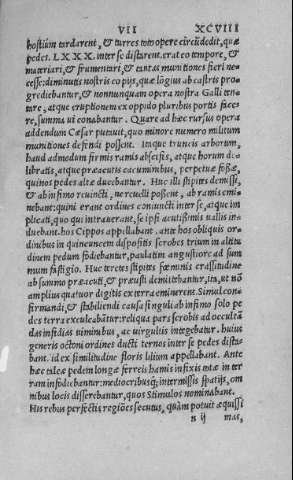 VII XCVIII
hostium tardarent, & turres toto opere circũdedit, quæ
pedes. L X X X. inter se distarent. erat eo tempore, &
materiari, & frumentari, & tantas munitiones fieri ne-
cesse: diminutis nostris copijs, quæ lõgius ab castris pro-
grediebantur, & nonnunquam opera nostra Galli ten-
tare, atque eruptionem ex oppido pluribus portis face-
re, summa ui conabantur. Quare ad hæc rursus opera
addendum Cæsar putauit, quo minore numero militum
munitiones defendi possent. Itaque truncis arborum,
haud admodum firmis ramis abscisis, atque horum de-
libratis, atque præacutis cacuminibus, perpetuæ fossæ,
quinos pedes altæ ducebantur. Huc illi stipites demissi,
& ab infimo reuincti, ne reuelli possent, ab ramis emi-
nebant: quini erant ordines coniuncti inter se, atque im
plicati, quo qui intrauerant, se ipsi acutißimis uallis in-
duebant. hos Cippos appellabant. ante hos obliquis or-
dinibus in quincuncem dispositis scrobes trium in altitu
dinem pedum fodiebantur, paulatim angustiore ad sum
mum fastigio. Huc teretes stipites fœminis crassitudine
ab summo præacuti, & præusti demittebantur, ita, ut nõ
amplius quatuor digitis ex terra eminerent. Simul con-
firmandi, & stabiliendi causa singuli ab infimo solo pe
des terra exculcabãtur: reliqua pars scrobis ad occultã
das insidias uiminibus, ac uirgultis integebatur. huius
generis octoni ordines ducti ternos inter se pedes dista-
bant. id ex similitudine floris lilium appellabant. Ante
hæc taleæ pedem longæ ferreis hamis infixis totæ in ter
ram infodiebantur: mediocribusq; intermissis spatijs, om
nibus locis disserebantur, quos Stimulos nominabant.
His rebus perfectis, regiões secutus, quàm potuit æquißi
n ij mas,